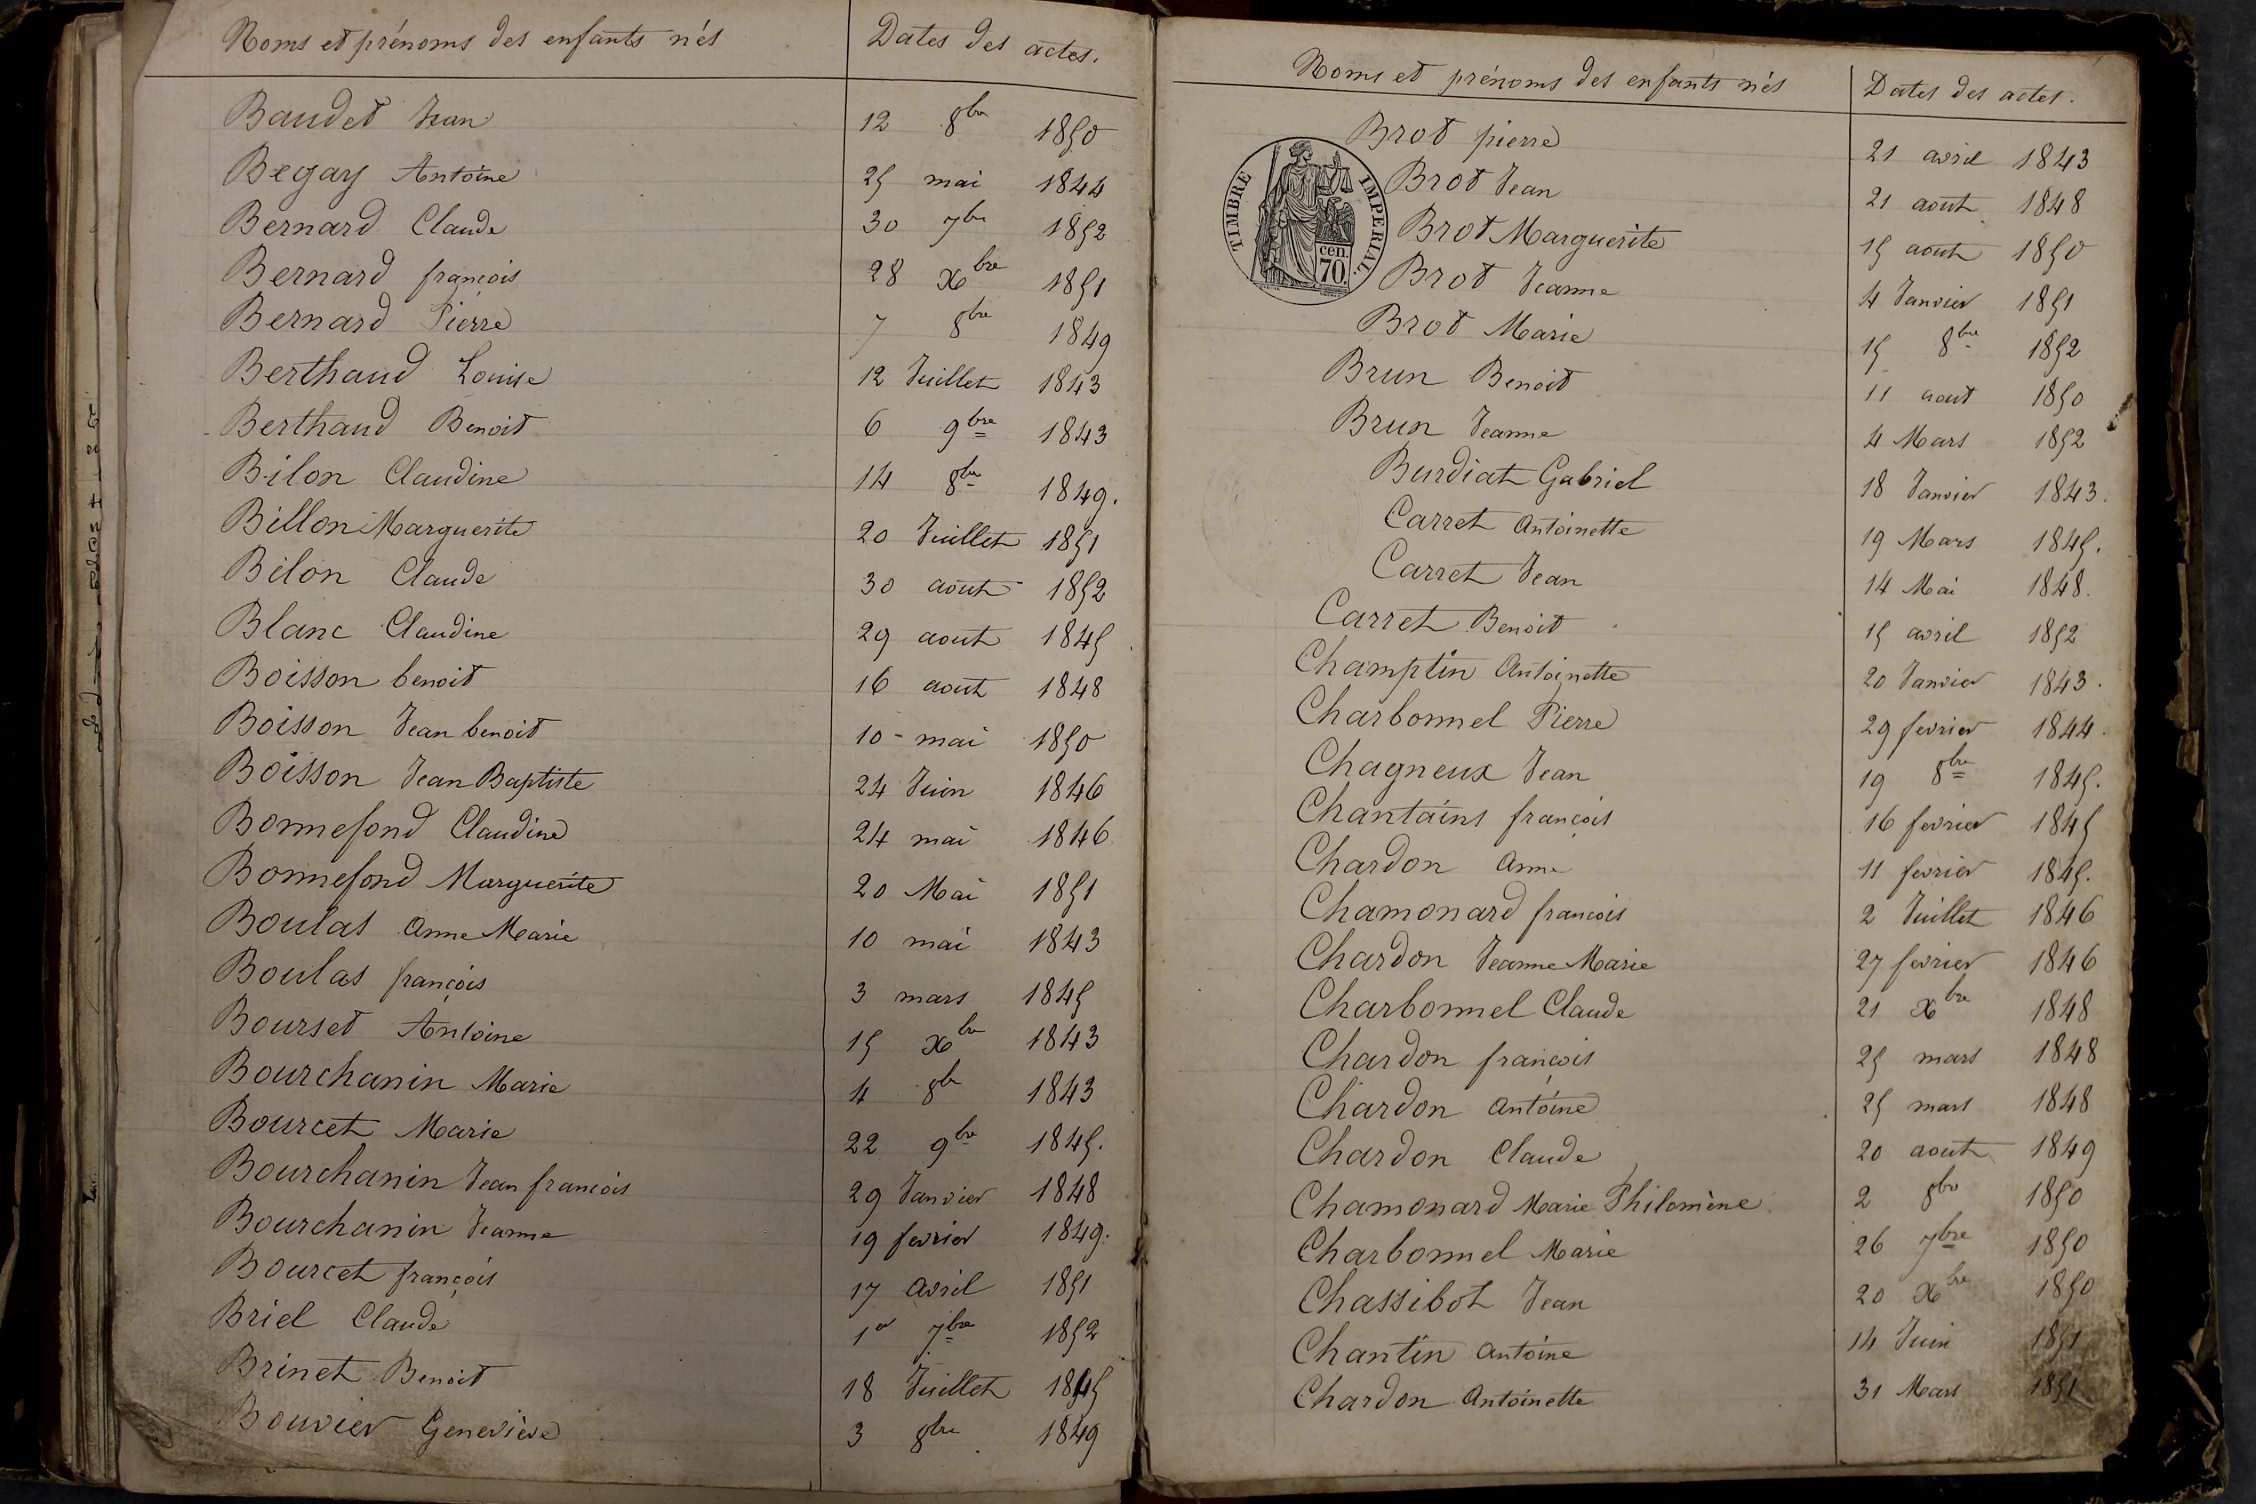 Noms et prénoms des enfants nés Dates des actes.
Baudet Jean 12 8bre 1850
Begay Antoine 25 mai 1844
Bernard Claude 30 7bre 1852
Bernard françois 28 Xbre 1851
Bernard Pierre 7 8bre 1849
Berthaud Louise 12 Juillet 1843
Berthaud Benoit 6 9bre 1843
Bilon Claudine 14 8bre 1849.
Billon Marguerite 20 Juillet 1851
Bilon Claude 30 aout 1852
Blanc Claudine 29 aout 1845
Boisson benoit 16 aout 1848
Boisson Jean benoit 10 - mai 1850
Boisson Jean Baptiste 24 Juin 1846
Bonnefond Claudine 24 mai 1846
Bonnefond Marguerite 20 Mai 1851
Boulas Anne Marie 10 mai 1843
Boulas françois 3 mars 1845
Bourset Antoine 15 Xbre 1843
Bourchanin Marie 4 8bre 1843
Bourcet Marie 22 9bre 1845.
Bourchanin Jean francois 29 Janvier 1848
Bourchanin Jeanne 19 fevrier 1849.
Bourcet françois 17 avril 1851
Briel Claude 1er 7bre 1852
Brinet Benoit 18 Juillet 1845
Bouvier Geneviève 3 8bre 1849
Noms et prénoms des enfants nés Dates des actes.
TIMBRE IMPERIAL.
cen.
70.
Brot pierre 21 avril 1843
Brot Jean 21 aout 1848
Brot Marguerite 15 aout 1850
Brot Jeanne 4 Janvier 1851
Brot Marie 15 8bre 1852
Brun Benoit 11 aout 1850
Brun Jeanne 4 Mars 1852
Burdiat Gabriel 18 Janvier 1843.
Carret Antoinette 19 Mars 1845.
Carret Jean 14 Mai 1848.
Carret Benoit 15 avril 1852
Champtin Antoinette 20 Janvier 1843.
Charbonnel Pierre 29 fevrier 1844.
Chagneux Jean 19 8bre 1845.
Chantains françois 16 fevrier 1845
Chardon Anne 11 fevrier 1845.
Chamonard francois 2 Juillet 1846
Chardon Jeanne Marie 27 fevrier 1846
Charbonnel Claude 21 Xbre 1848
Chardon françois 25 mars 1848
Chardon Antoine 25 mars 1848
Chardon Claude 20 aout 1849
Chamonard Marie Philomène 2 8bre 1850
Charbonnel Marie 26 7bre 1850
Chassibot Jean 20 Xbre 1850
Chantin Antoine 14 Juin 1851
Chardon Antoinette 31 Mars 1851